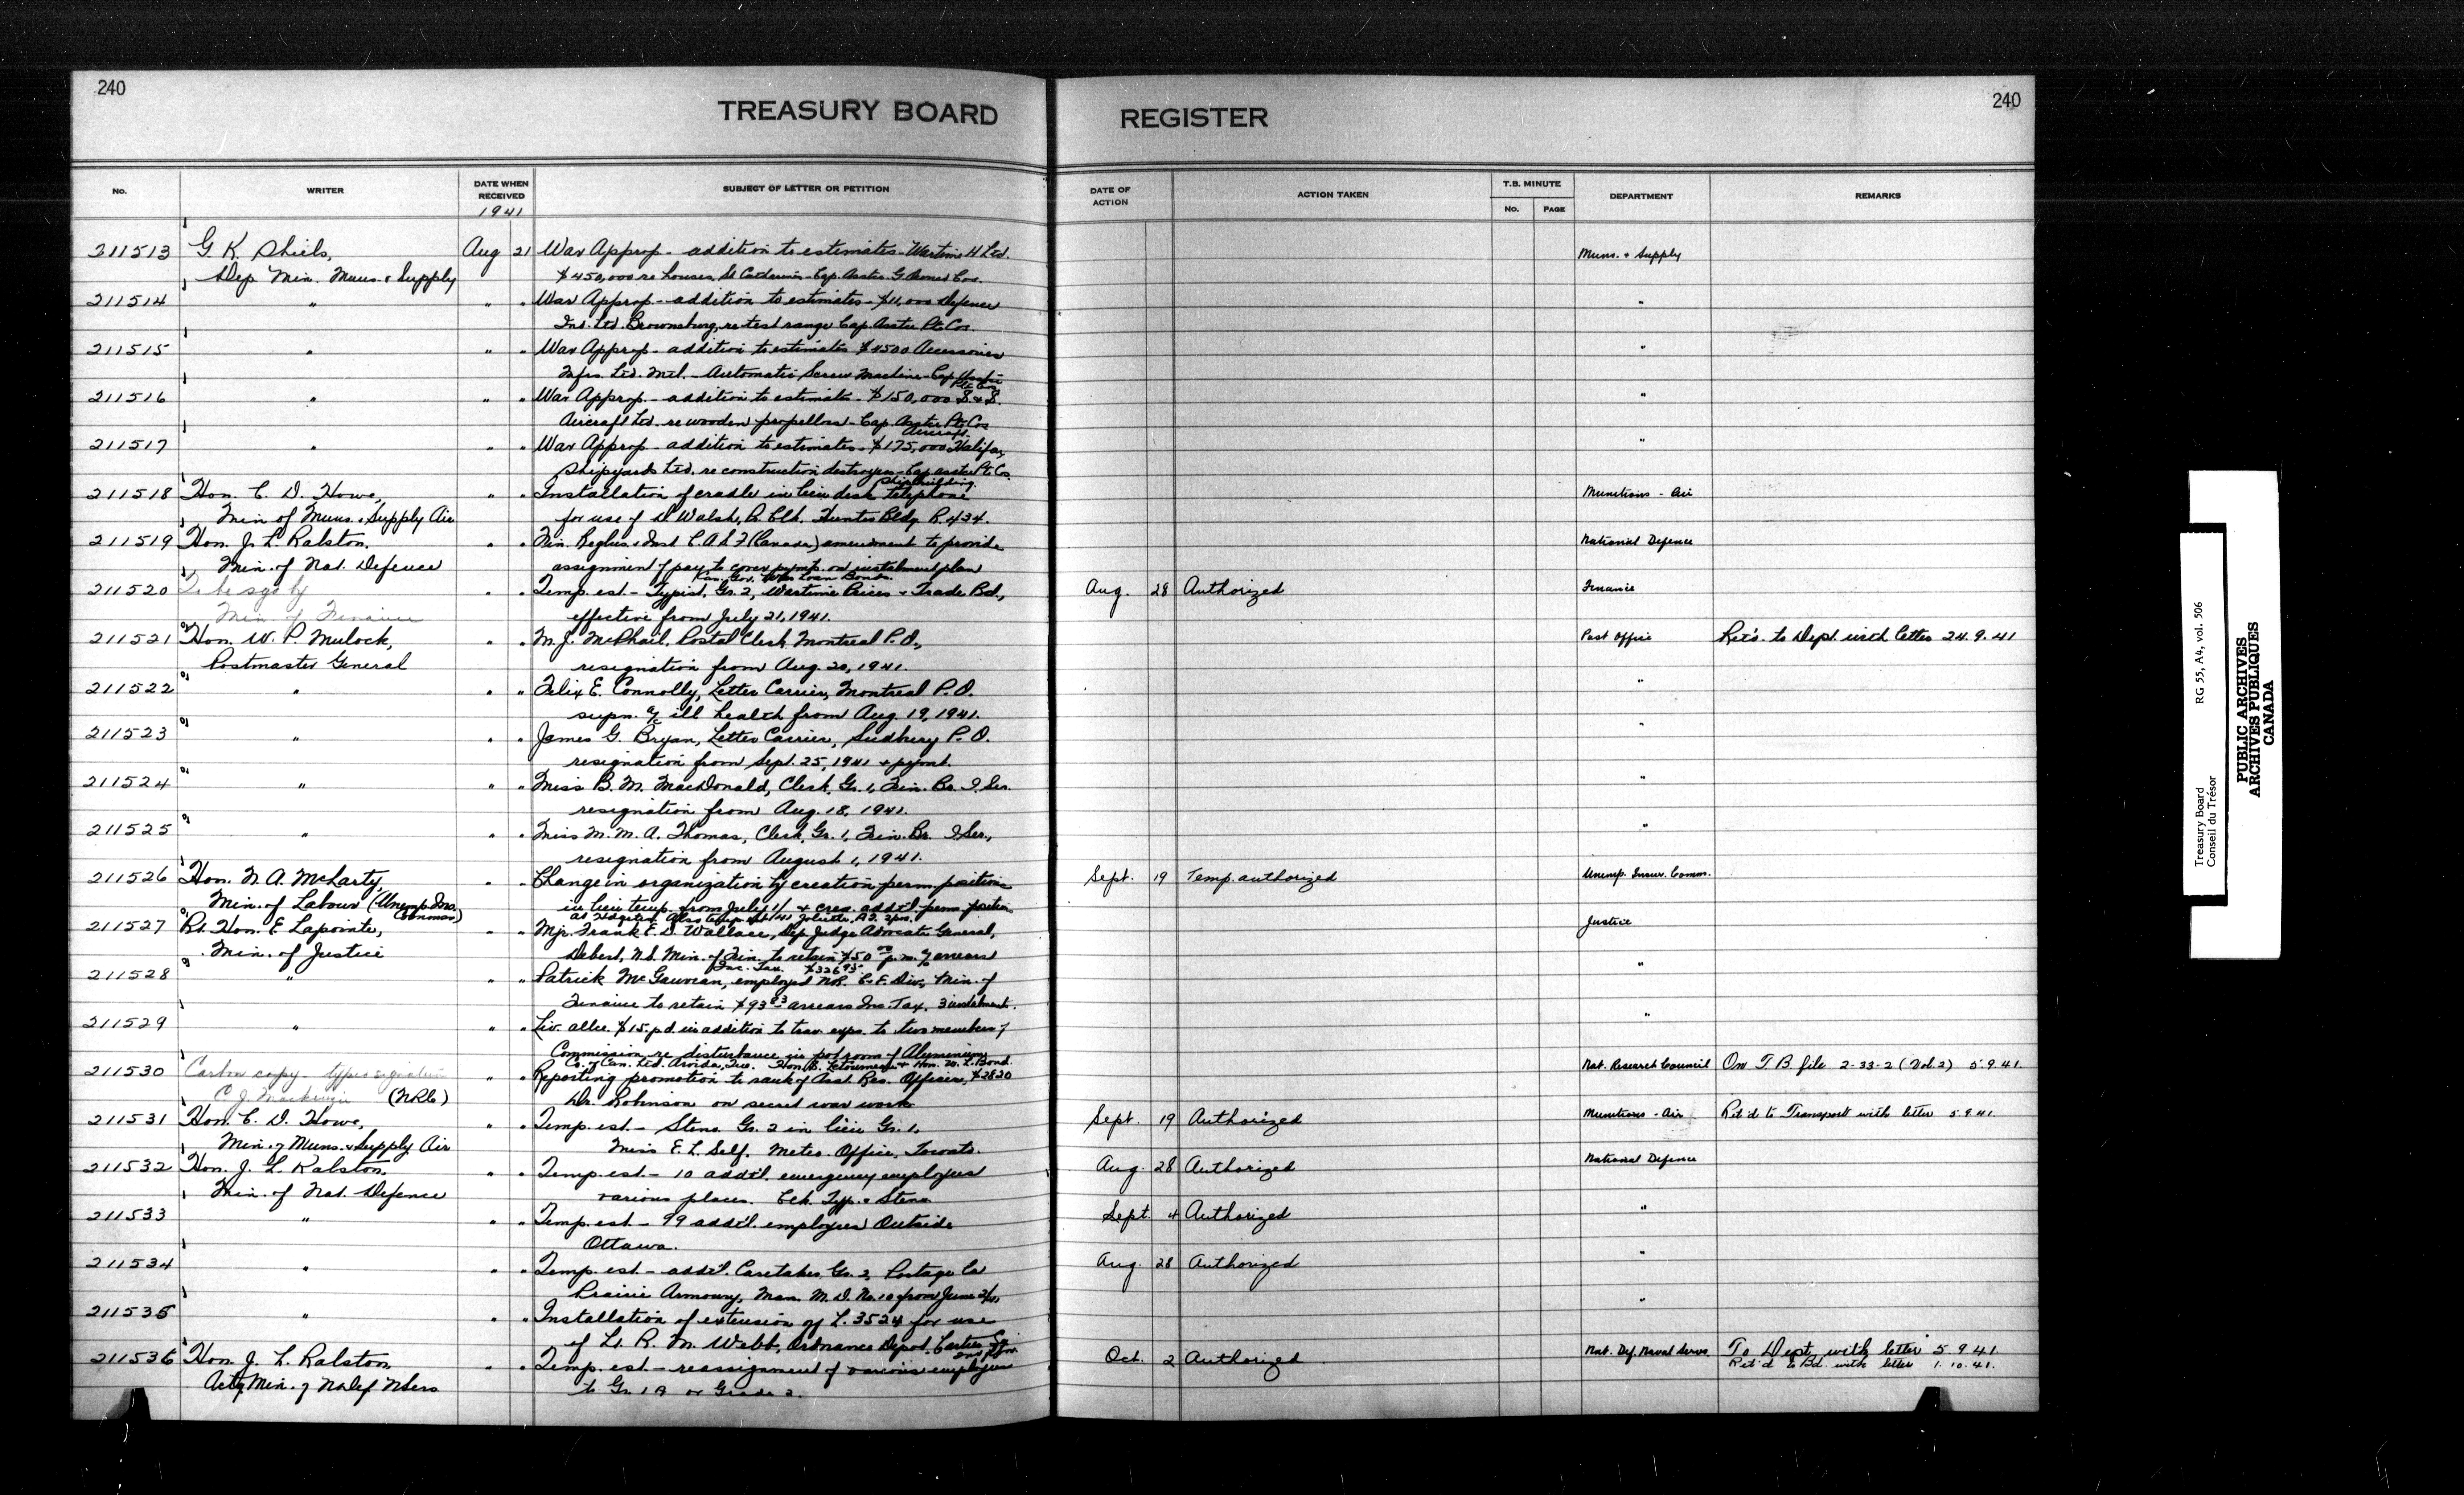 240
TREASURY BOARD REGISTER
240
No. WRITER DATE WHEN RECEIVED SUBJECT OF LETTER OR PETITION DATE OF ACTION ACTION TAKEN T.B. MINUTE No. PAGE DEPARTMENT REMARKS
1941
211513 G. K. Shiels, Aug 21 War Approp - addition to estimates - Wartime H Ltd. Muns. & Supply
Dep Min. Muns. & Supply $450,000 re houses, St Catherines - Cap. Asstce. G. Cos.
211514 " " " War Approp - addition to estimates - $11,000 Defence "
Ind. Ltd. Brownsburg, re test range Cap. Asstce Pte Cos.
211515 " " " War Approp - addition to estimates $4500 Accessories "
Mfrs. Ltd. Mtl. - Automatic Screw Machine - Cap Asstce
Pte Cos
211516 " " " War Approp. - addition to estimates - $150,000 S. & S. "
Aircraft Ltd. re wooden propellors - Cap. Asstce Pte Cos
Aircraft.
211517 " " " War Approp - addition to estimates - $175,000 Halifax "
Shipyards Ltd. re construction destroyers - Cap asstce Pte Cos.
Shipbuilding.
211518 Hon. C. D. Howe, " " Installation of cradle in lieu desk telephone Munitions - Air
Min of Muns. & Supply Air for use of D Walsh, P. Clk. Hunter Bldg. R. 434.
211519 Hon. J. L. Ralston, " " Fin. Reglns. & Inst C.A.S.F (Canada) amendment to provide National Defence
Min. of Nat. Defence assignment of pay to cover pymts. on instalment plan
Can. Gov. War Loan Bonds.
211520 To be sgd by " " Temp. est - Typist, Gr. 2, Wartime Prices & Trade Bd., Aug. 28 Authorized Finance
Min. of Finance effective from July 21, 1941.
211521 Hon. W. P. Mulock, " " M. J. McPhail, Postal Clerk, Montreal P.O., Post Office Ret'd. to Dept. with letter 24.9.41
Postmaster General resignation from Aug. 20, 1941.
211522 " " " Felix E. Connolly, Letter Carrier, Montreal P.O. "
supn. a/c ill health from Aug. 19, 1941.
211523 " " " James G. Bryan, Letter Carrier, Sudbury P.O. "
resignation from Sept. 25, 1941 & pymt.
211524 " " " Miss B. M. MacDonald, Clerk, Gr. 1, Fin. Br. O. Ser. "
resignation from Aug. 18, 1941.
211525 " " " Miss M. M. A. Thomas, Clerk, Gr. 1, Fin. Br. O Ser., "
resignation from August 1, 1941.
211526 Hon. N. A. McLarty, " " Change in organization by creation perm. positions Sept. 19 Temp. authorized Unemp. Insur. Comm.
Min. of Labour (Unemp Ins. Commn.) in lieu temp. from July 1/41 & crea. addt'l perm. position
211527 Rt. Hon. E Lapointe, " " Mjr. Frank E. D. Wallace, Dep. Judge Advocate General, Justice
Min. of Justice Debert, N.S. Min. of Fin. to retain $50 00 p.m. a/c arrears
Inc. Tax. $326 95
211528 " " " Patrick McGauvran, employed N.R. C.E. Div., Min. of "
Finance to retain $93 83 arrears Inc. Tax. 3 instalment.
211529 " " " Liv. allce. $15. p.d. in addition to trav exps. to two members of "
Commission re disturbance in potroom of Aluminium
Co. of Can. Ltd. Arvida, Que. Hon. S. Letourneau & Hon. W. L. Bond.
211530 Carbon copy - types signature " " Reporting promotion to rank of Asst. Res. Officer, $2820 Nat. Research Council On T.B. file 2-33-2 (Vol. 2) 5.9.41.
C. J. Mackenzie (NRC) Dr. Robinson on secret war work
211531 Hon. C. D. Howe, " " Temp. est - Steno. Gr. 2 in lieu Gr. 1. Sept. 19 Authorized Munitions - Air Ret'd to Transport with letter 5.9.41.
Min. of Muns. & Supply Air Miss E. L. Self. Meteo. Office, Toronto.
211532 Hon. J. L. Ralston, " " Temp. est - 10 addt'l. emergency employees Aug. 28 Authorized National Defence
Min. of Nat. Defence various places. Clk. Typ. & Steno
211533 " " " Temp. est - 99 addt'l. employees Outside Sept. 4 Authorized "
Ottawa.
211534 " " " Temp. est - addt'l. Caretaker, Gr. 2, Portage la Aug. 28 Authorized "
Prairie Armoury, Man. M.D. No. 10 from June 2/41
211535 " " " Installation of extension of L. 3524 for use "
of Lt. R. M. Webb, Ordnance Depot, Cartier Sq.
211536 Hon. J. L. Ralston " " Temp. est - reassignment of various employees Oct. 2 Authorized Nat. Def. Naval Servs. To Dept. with letter 5.9.41.
Actg Min. of N Def NServ to Gr. 1A or Grade 2. Ret'd to Bd. with letter 1.10.41.
Treasury Board RG 55, A4, vol. 506
Conseil du Trésor
PUBLIC ARCHIVES
ARCHIVES PUBLIQUES
CANADA